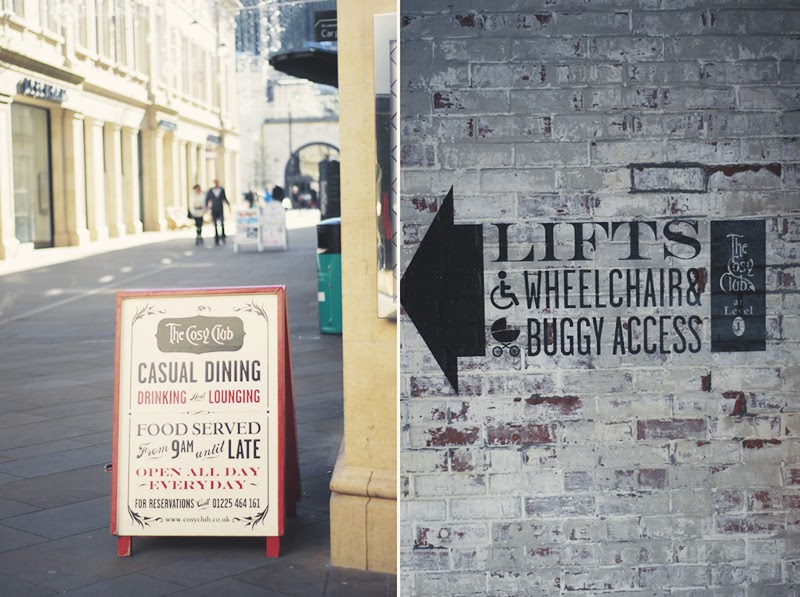 The Cosy Club
CASUAL DINING
DRINKING And LOUNGING
FOOD SERVED
From 9AM until LATE
OPEN ALL DAY
EVERYDAY
FOR RESERVATIONS Call 01225 464 161
www.cosyclub.co.uk
LIFTS
WHEELCHAIR&
BUGGY ACCESS
The
Cosy
Club
at
Level
1